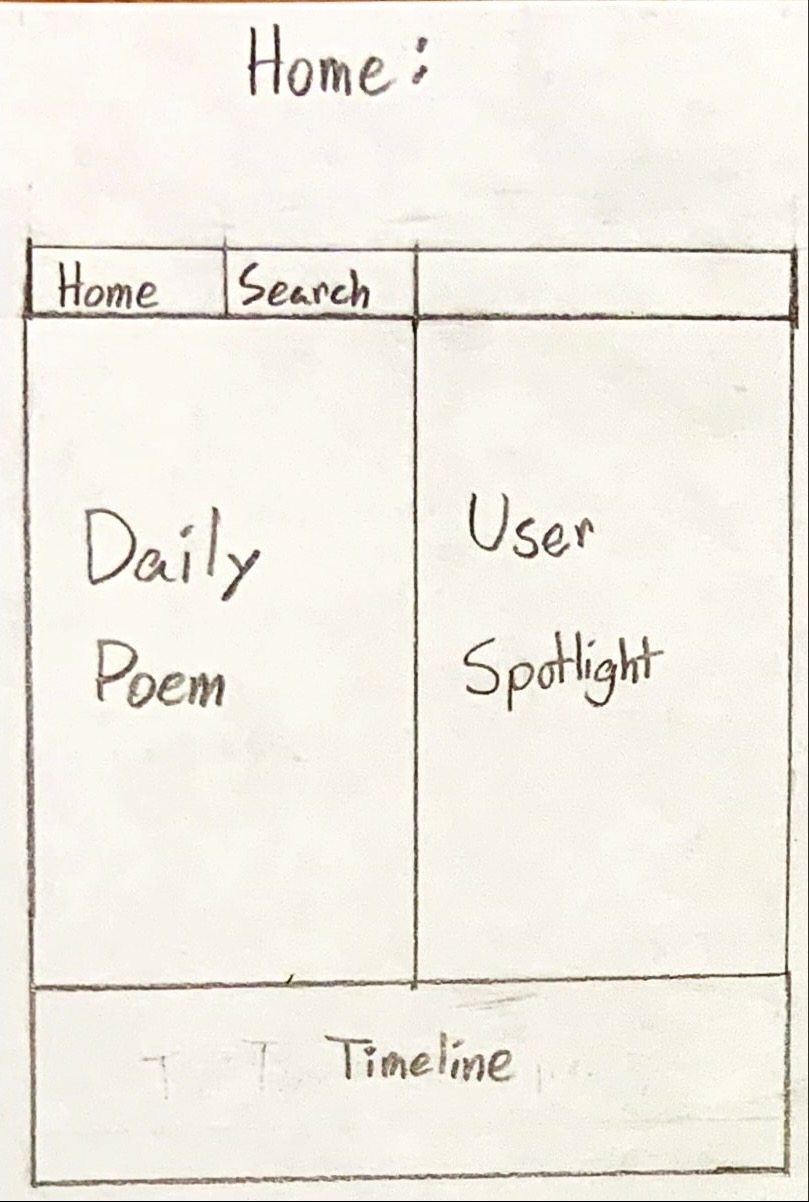 Home:
Home Search
Daily
Poem
User
Spotlight
Timeline